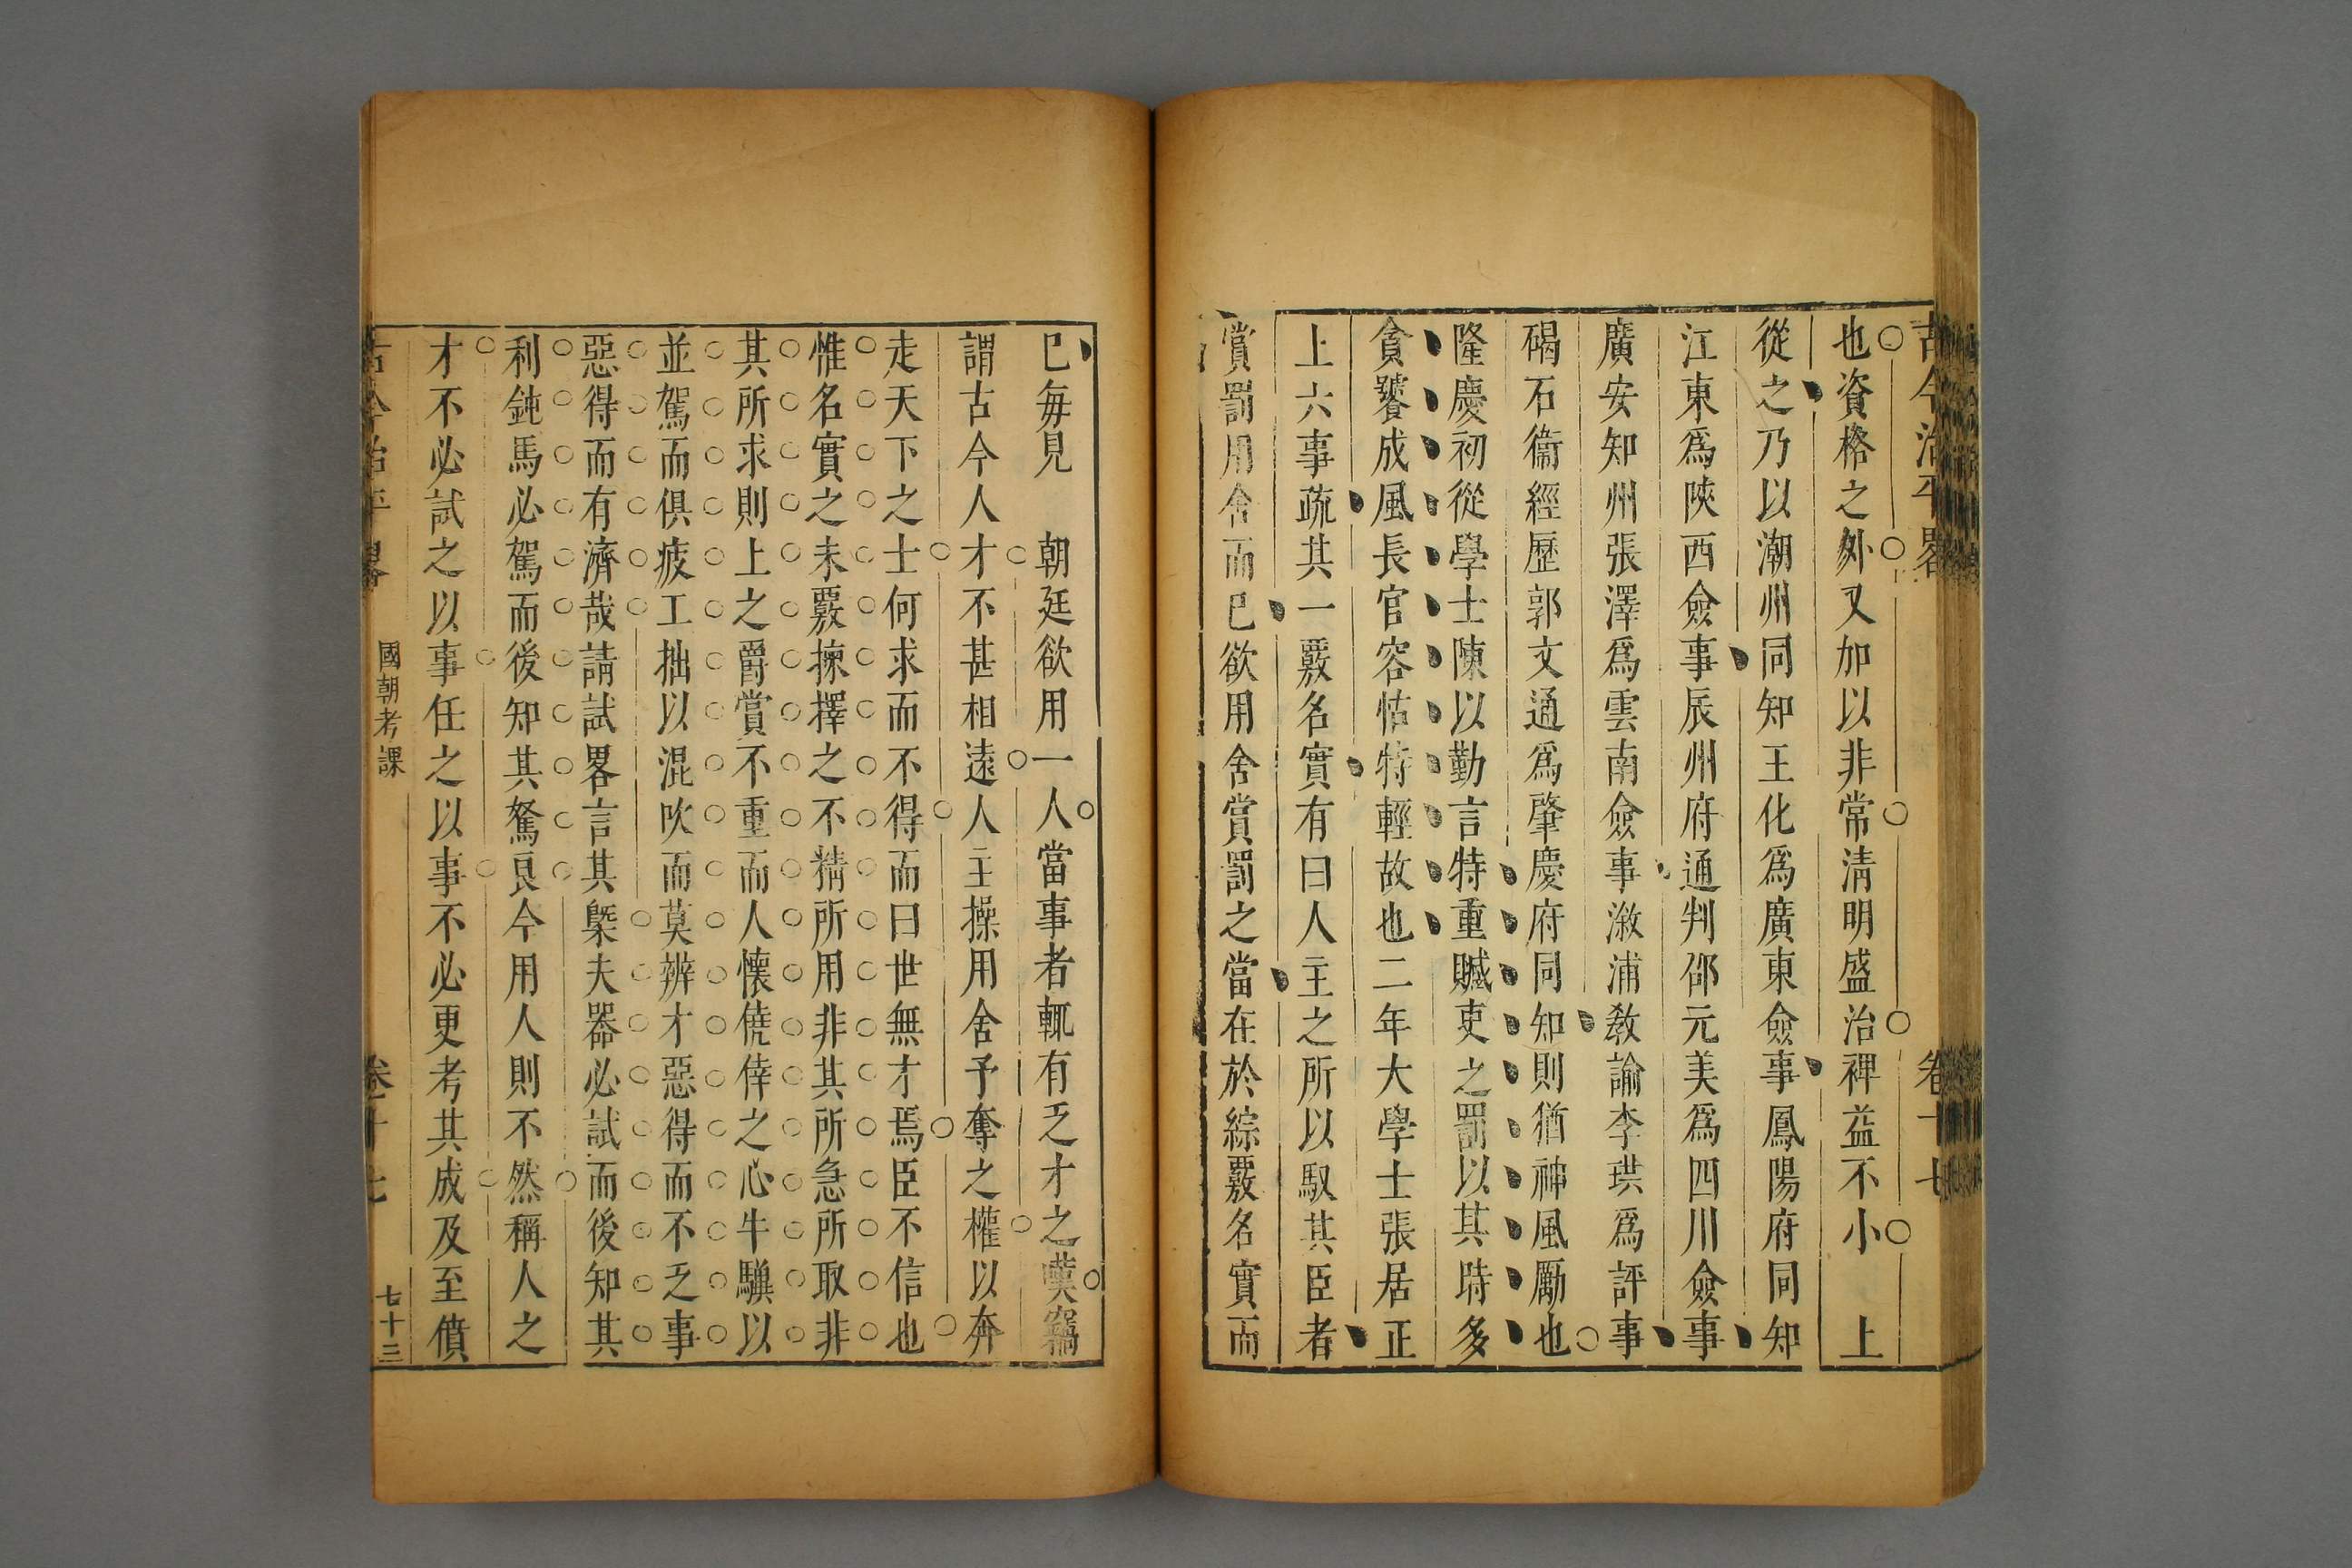 古今治平畧 卷十七
也資格之外又加以非常淸明盛治禆益不小 上
從之乃以潮州同知王化爲廣東僉事鳳陽府同知
江東爲陝西僉事辰州府通判邵元美爲四川僉事
廣安知州張澤爲雲南僉事漵浦敎諭李珙爲評事
碣石衞經歷郭文通爲肇慶府同知則猶神風勵也
隆慶初從學士陳以勤言特重贓吏之罰以其時多
貪饕成風長官容怙特輕故也二年大學士張居正
上六事疏其一覈名實有曰人主之所以馭其臣者
賞罰用舍而已欲用舍賞罰之當在於綜覈名實而
已毎見 朝廷欲用一人當事者輒有乏才之嘆竊
謂古今人才不甚相遠人主操用舍予奪之權以奔
走天下之士何求而不得而曰世無才焉臣不信也
惟名實之未覈揀擇之不精所用非其所急所取非
其所求則上之爵賞不重而人懷僥倖之心牛驥以
並駕而俱疲工拙以混吹而莫辨才惡得而不乏事
惡得而有濟哉請試畧言其槩夫器必試而後知其
利鈍馬必駕而後知其駑良今用人則不然稱人之
才不必試之以事任之以事不必更考其成及至僨
古今治平畧 國朝考課 卷十七 七十三